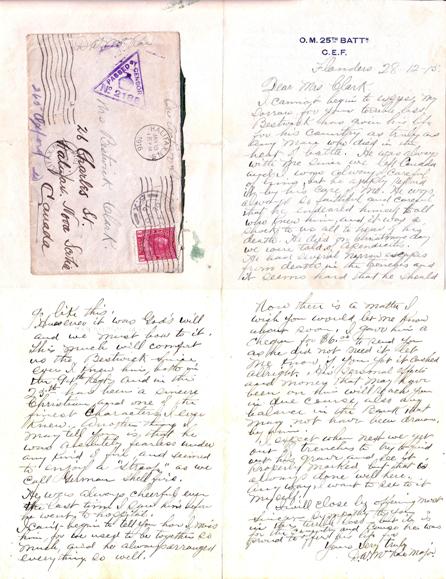 PASSED BY CENSOR
No 2198
HALIFAX
Mrs Bestwick Clark
26 Charles St.
Halifax Nova Scotia
Canada
O.M. 25TH BATTN
C.E.F.
Flanders 28-12-15
Dear Mrs Clark.
I cannot begin to express my
sorrow for your terrible loss
Bestwick has given his life
for his Country as truly as
being many who died in the
heat of battle. He was always
with me since we left Canada
and was always careful
of
by his care of me. He was
always so faithful and careful
that he endeared himself to all
who knew him and it was a
shock to us all to hear of his
death. He died on Christmas day
we were told of appendicitis.
He had several narrow escapes
from death in the trenches and
it seems hard that he should
go like this.
However it was God's will
and we must bow to it.
This much will comfort
us the Bestwick since
ever I knew him, both in
the Regt, and in the
25th has been a sincere
Christian and one of the
finest Characters I ever
knew. Another thing I
may tell you is that he
was absolutely fearless under
any kind of fire and seemed
to enjoy a "strafe" as we
call German shell fire.
He was always cheerful even
the last time I saw him before
he went to hospital.
I can't begin to tell you how I miss
him, for we used to be together so
much, and he always arranged
everything so well.
Now there is a matter I
wish you would let me know
about soon. I gave him a
cheque for $60.00 to send you
as he did not need it. Let
me know if you got it cashed
alright. His personal effects
and money that may have
been on him will reach you
in due course also any
balance in the Bank that
may not have been drawn
by him.
I expect when next we get
out of trenches to try to find
out his grave, and see it
properly marked, but that is
always done well here.
Anyway, I want to see to it
myself.
I will close by offering most
sincere sympathy to you
in this
the and cause he was
proud to offer his life for
Yours very truly
Major